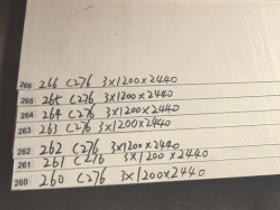 266 266 C276 3x1200x2440
265 265 C276 3x1200x2440
264 264 C276 3x1200x2440
263 263 C276 3x1200x2440
262 262 C276 3x1200x2440
261 261 C276 3x1200x2440
260 260 C276 3x1200x2440